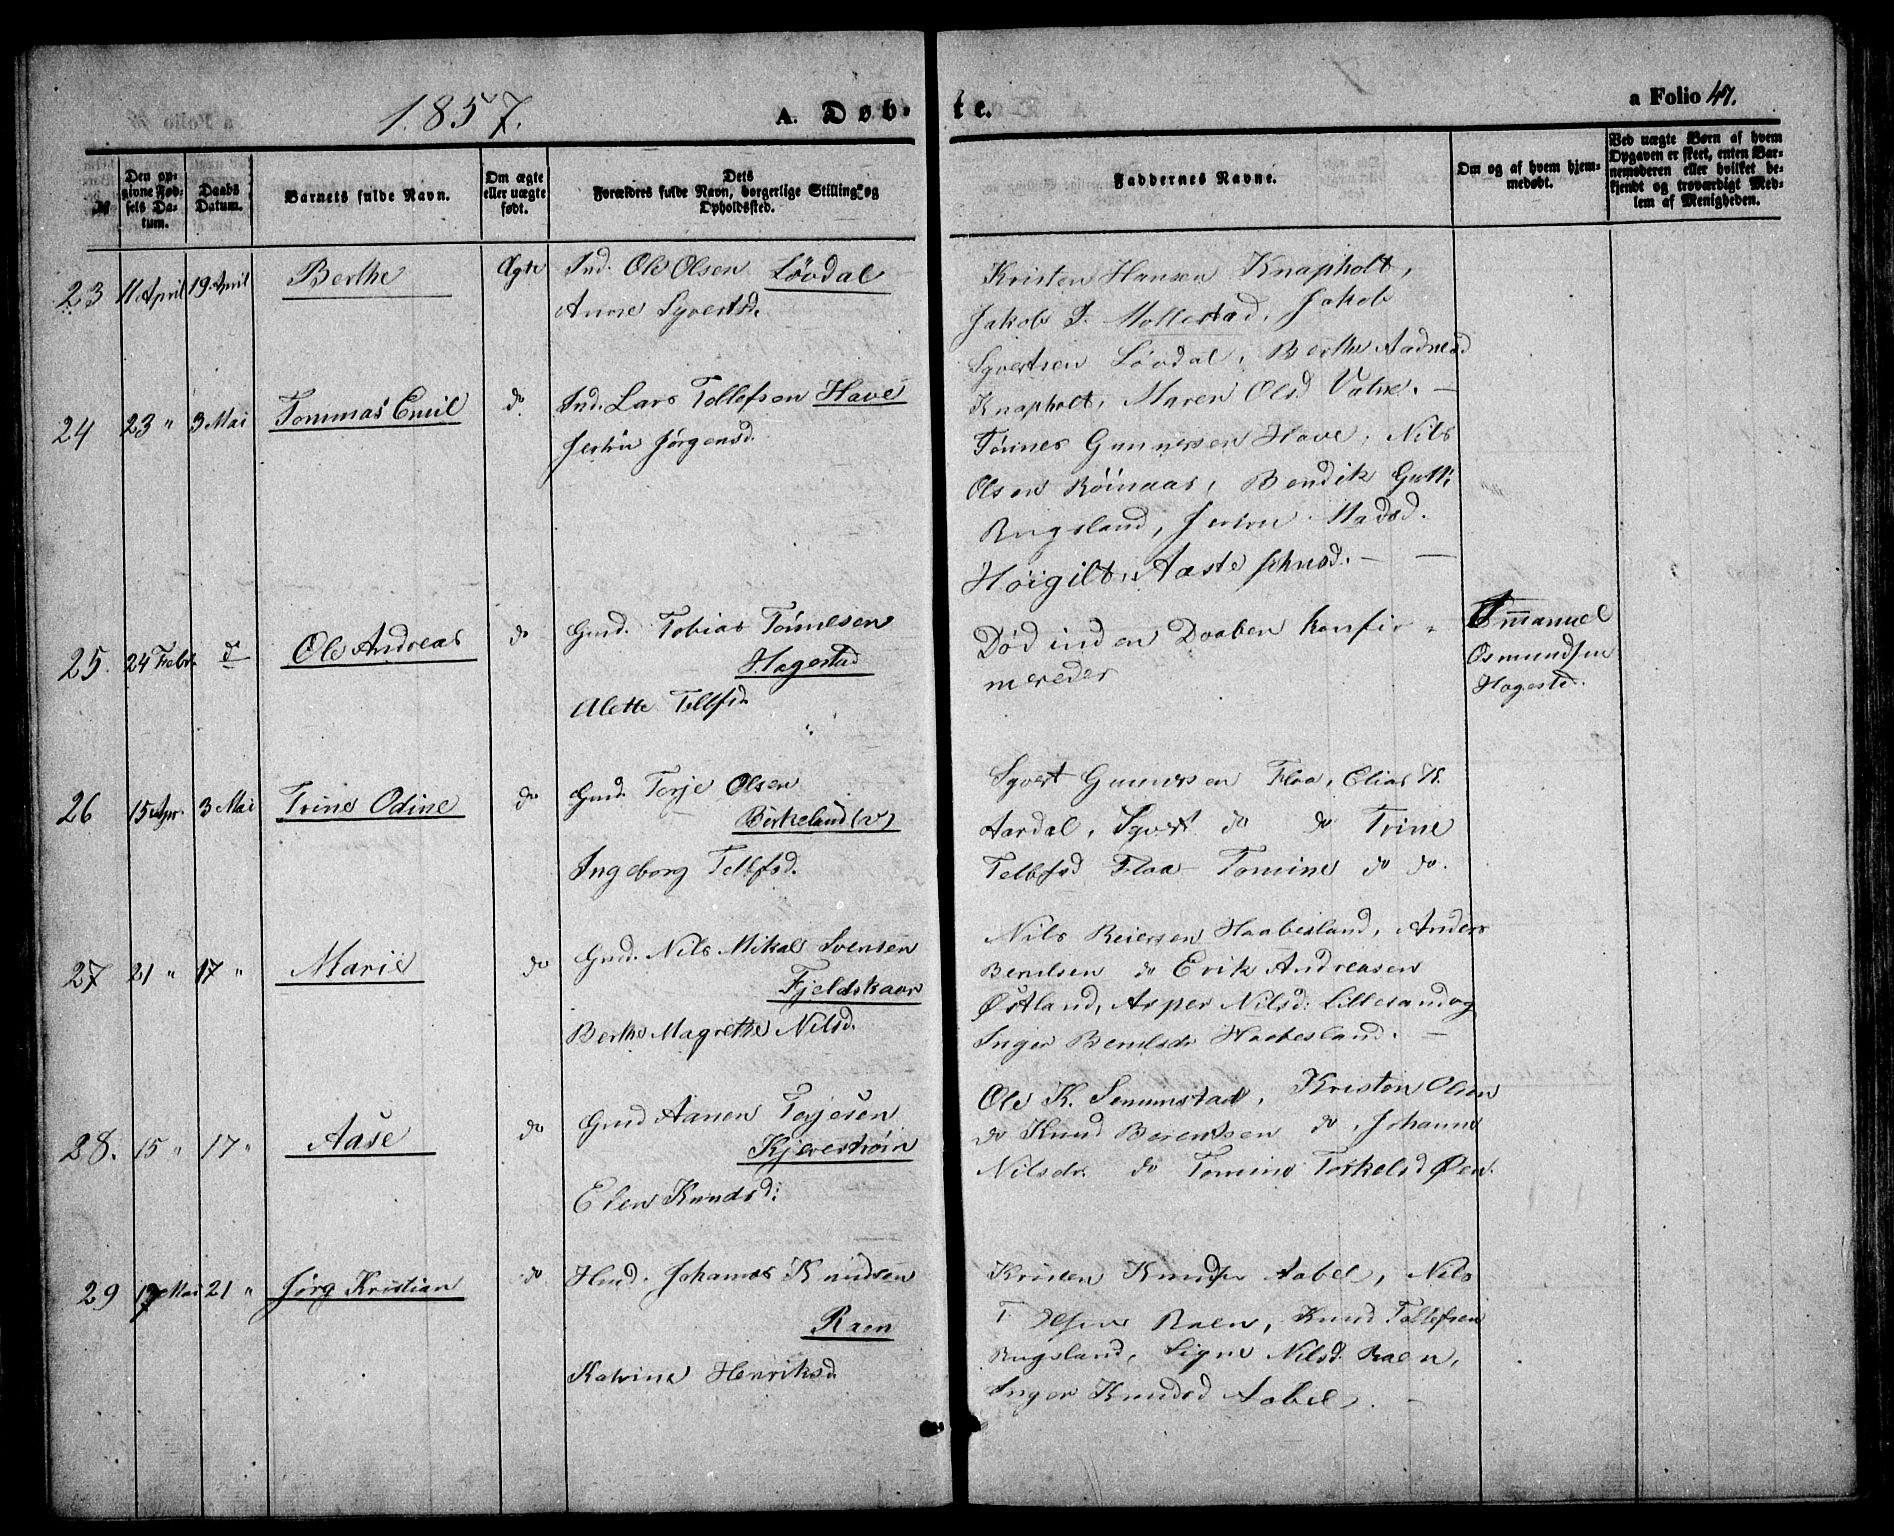 1857.
A. Døb-
te.
a Folio 47.
№
Den op-
givne Fød-
sels Da-
tum.
Daabs
Datum.
Barnets fulde Navn.
Om ægte
eller uægte
født.
Dets
Forældres fulde Navn, borgerlige Stilling og
Opholdssted.
Faddernes Navne.
Om og af hvem hjem-
medøbt.
Ved uægte Børn af hvem
Opgaven er skeet, enten Bar-
nemoderen eller hvilket be-
kjendt og troværdigt Med-
lem af Menigheden.
23 11 April 19 April Berthe Ægte Ind. Ole Olsen Løvdal
Anne Syvertsd.
Kristen Hansen Knapholt,
Jakob J. Mollestad, Jakob
Syvertsen Løvdal, Berthe Aadnesd
Knapholt, Maren Olsd Vatne. —
24 23 " 3 Mai Tommas Emil do Ind. Lars Tollefsen Have
Jørgensd.
Tønnes Gunnersen Have, Nils
Olsen Røinaas, Bendik
Rugsland, Madsd.
Høigilt, Aaste Johnsd. —
25. 24 Febr. d Ole Andreas do Gmd. Tobias Tønnesen
Hagestad
Alette Tellefsd.
Død inden Daaben konfir-
mereder
Emmanuel
Osmundsen
Hagestd.
26 15 Apr. 3 Mai Trine Odine do Gmd. Terje Olsen
Birkeland (v)
Ingeborg Tellefsd.
Syvert Gunnersen Flaa, Elias
Aardal, Syvert do do Trine
Tellefsd Flaa Tomine do do.
27 21 " 17 " Marie do Gmd. Nils Mikal Svensen
Fjeldskaar
Berthe Magrethe Nilsd.
Nils Reiersen Haabesland, Anders
Berulsen do Erik Andreasen
Østland, Asper Nilsd: Lillesand og
Inger Berulsdr Haabesland. —
28. 15 " 17 " Aase do Gmd Aanen Terjesen
Kjevestrøm
Elen Knudsd:
Ole K. Senumstad, Kristen Olsen
do Knud Berentsen do, Johanne
Nilsdr. do Tomine Torkelsd Øen.
29 17 Mai 21 " Jørg Kristian do Hmd. Johannes Knudsen
Raen
Katrine Henriksd.
Kristen Knudsen Aabel, Nils
T Raen, Knud Tollefsen
Rugsland, Signe Nilsd. Raen,
Inger Knudsd Aabel. —